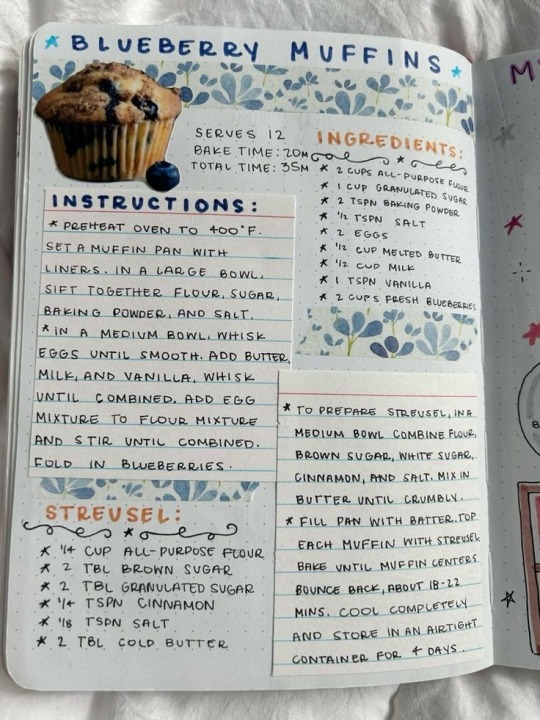 BLUEBERRY MUFFINS
SERVES 12
BAKE TIME: 20M
TOTAL TIME: 35M
INGREDIENTS:
* 2 CUPS ALL-PURPOSE FLOUR
* 1 CUP GRANULATED SUGAR
* 2 TSPN BAKING POWDER
* 1/2 TSPN SALT
* 2 EGGS
* 1/2 CUP MELTED BUTTER
* 1/2 CUP MILK
* 1 TSPN VANILLA
* 2 CUPS FRESH BLUEBERRIES
INSTRUCTIONS:
* PREHEAT OVEN TO 400°F.
SET A MUFFIN PAN WITH
LINERS. IN A LARGE BOWL,
SIFT TOGETHER FLOUR, SUGAR,
BAKING POWDER, AND SALT.
* IN A MEDIUM BOWL, WHISK
EGGS UNTIL SMOOTH. ADD BUTTER,
MILK, AND VANILLA, WHISK
UNTIL COMBINED. ADD EGG
MIXTURE TO FLOUR MIXTURE
AND STIR UNTIL COMBINED.
FOLD IN BLUEBERRIES.
STREUSEL:
* 1/4 CUP ALL-PURPOSE FLOUR
* 2 TBL BROWN SUGAR
* 2 TBL GRANULATED SUGAR
* 1/4 TSPN CINNAMON
* 1/8 TSPN SALT
* 2 TBL COLD BUTTER
* TO PREPARE STREUSEL, IN A
MEDIUM BOWL COMBINE FLOUR,
BROWN SUGAR, WHITE SUGAR,
CINNAMON, AND SALT. MIX IN
BUTTER UNTIL CRUMBLY.
* FILL PAN WITH BATTER. TOP
EACH MUFFIN WITH STREUSEL
BAKE UNTIL MUFFIN CENTERS
BOUNCE BACK, ABOUT 18-22
MINS. COOL COMPLETELY
AND STORE IN AN AIRTIGHT
CONTAINER FOR 4 DAYS.